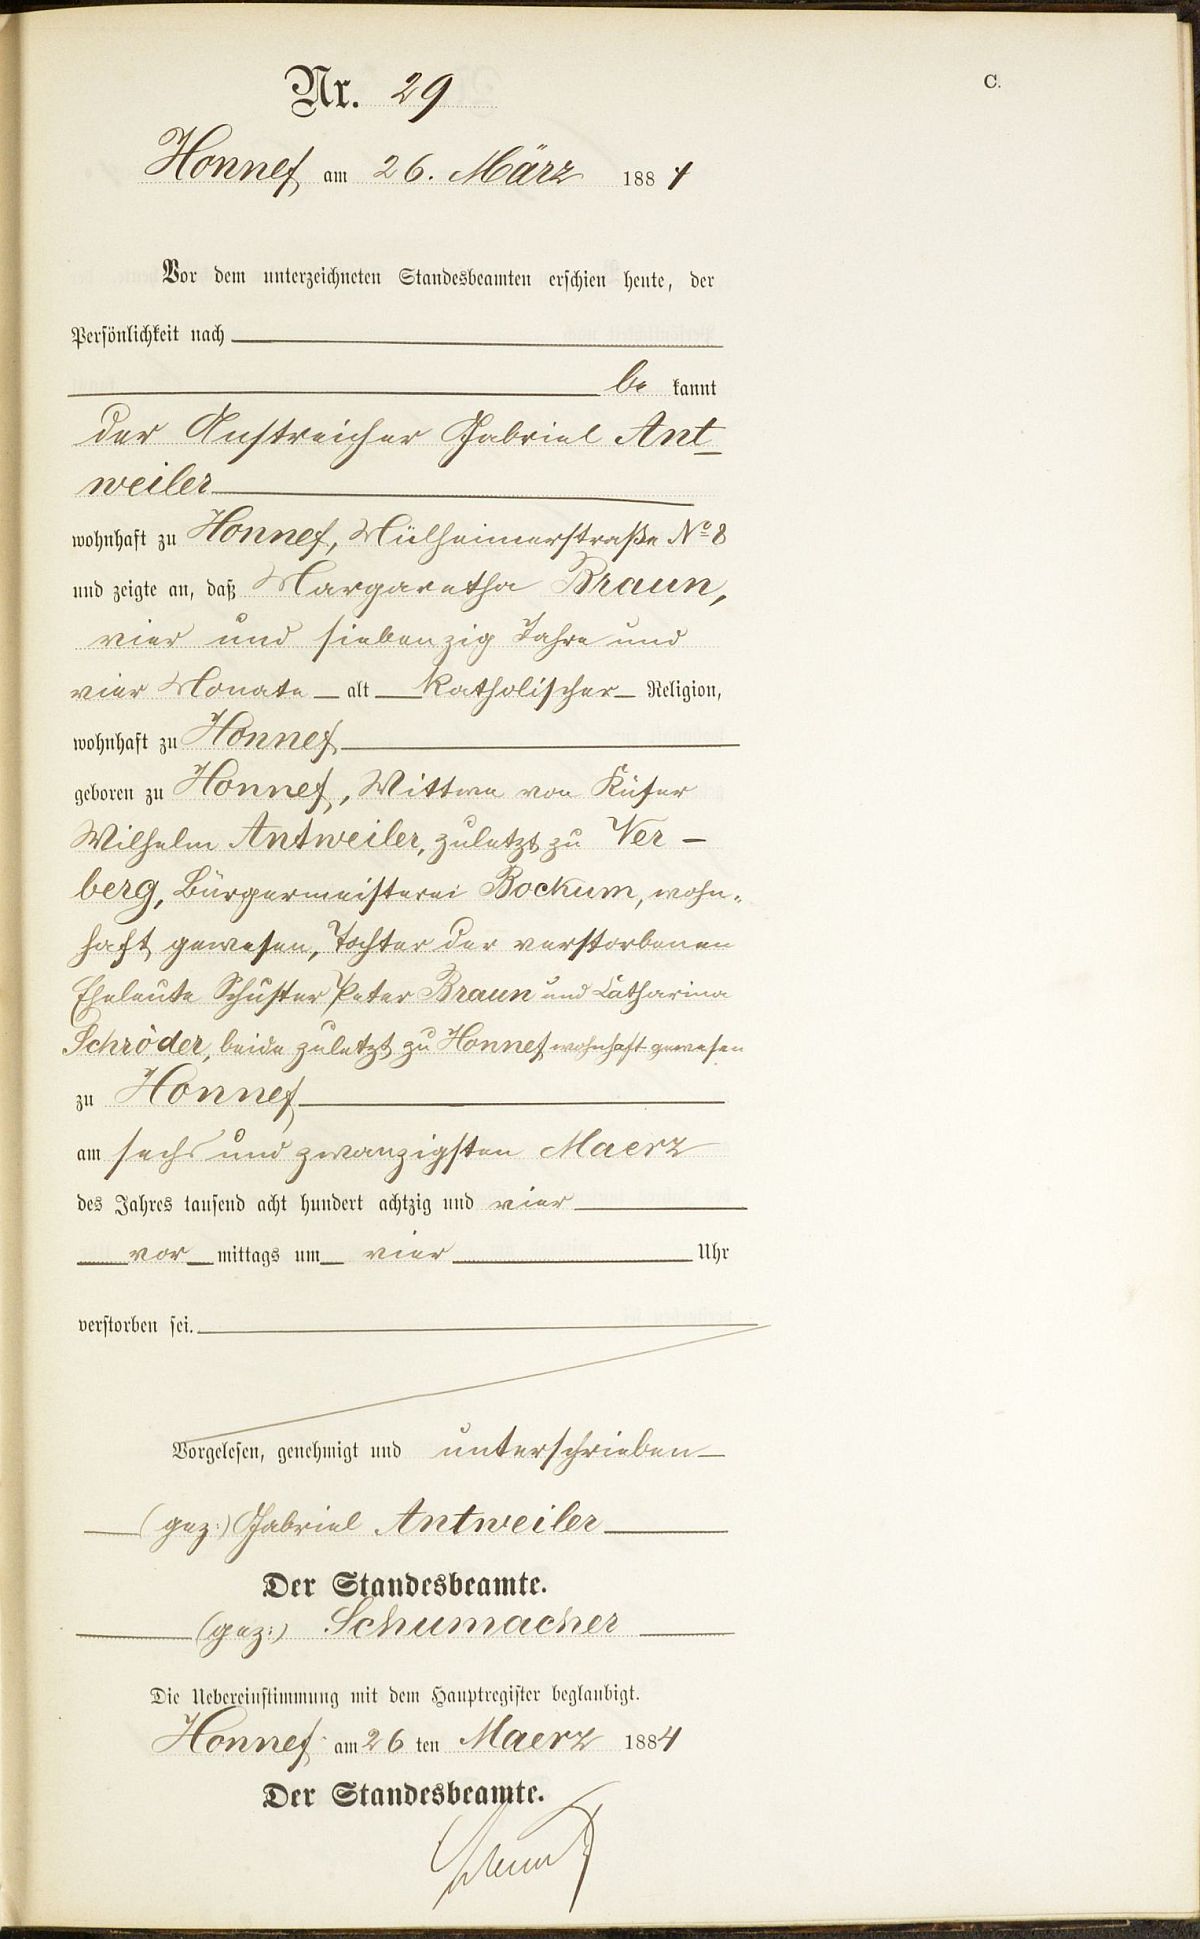 C.
Nr. 29
Honnef am 26. März 1884
Vor dem unterzeichneten Standesbeamten erschien heute, der
Persönlichkeit nach
be kannt
der Anstreicher Gabriel Ant-
weiler
wohnhaft zu Honnef, Mülheimerstraße No 8
und zeigte an, daß Margaretha Braun,
vier und siebenzig Jahre und
vier Monate alt katholischer Religion,
wohnhaft zu Honnef
geboren zu Honnef, Wittwe von Küfer
Wilhelm Antweiler, zuletzt zu Ver-
berg, Bürgermeisterei Bockum, wohn-
haft gewesen, Tochter der verstorbenen
Eheleute Schuster Peter Braun und Catharina
Schröder, beide zuletzt zu Honnef wohnhaft gewesen
zu Honnef
am sechs und zwanzigsten Maerz
des Jahres tausend acht hundert achtzig und vier
vor mittags um vier Uhr
verstorben sei.
Vorgelesen, genehmigt und unterschrieben
(gez:) Gabriel Antweiler
Der Standesbeamte.
(gez:) Schumacher
Die Uebereinstimmung mit dem Hauptregister beglaubigt.
Honnef am 26 ten Maerz 1884
Der Standesbeamte.